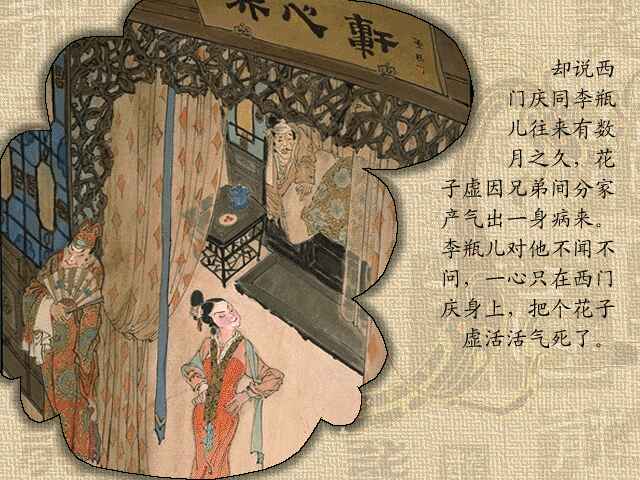 养心軒
却说西
门庆同李瓶
儿往来有数
月之久，花
子虚因兄弟间分家
产气出一身病来。
李瓶儿对他不闻不
问，一心只在西门
庆身上，把个花子
虚活活气死了。